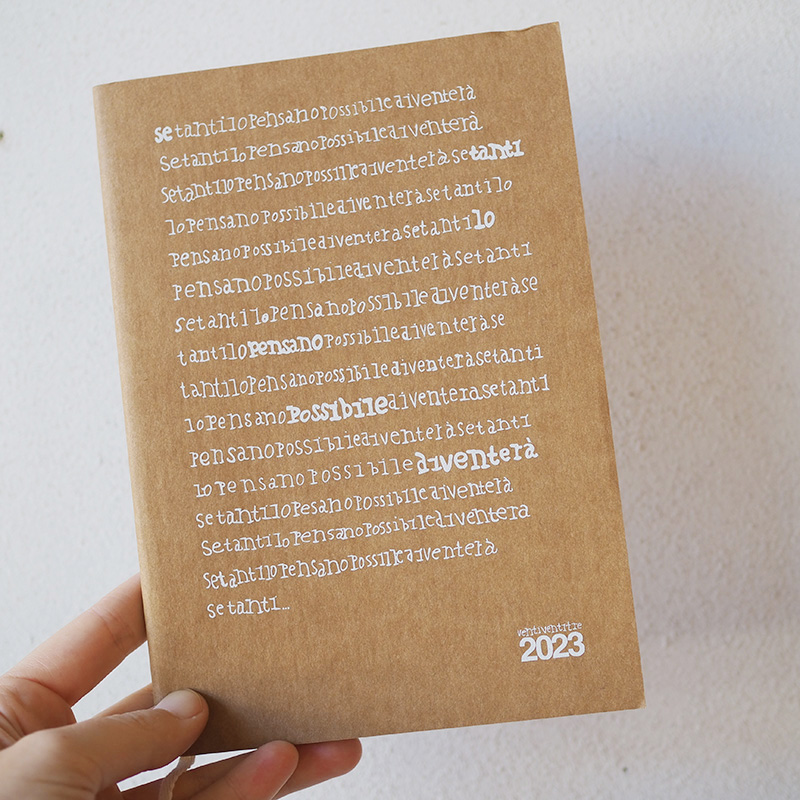 setantilopensanopossibilediventerà
Setantilopensanopossibilediventerà
Setantilopensanopossibilediventeràsetanti
lopensanopossibilediventeràsetantilo
pensanopossibilediventeràsetantilo
pensanopossibilediventeràsetanti
setantilopensanopossibilediventeràse
tantilopensanopossibilediventeràse
tantilopensanopossibilediventeràsetanti
lopensanopossibilediventeràsetanti
pensanopossibilediventeràsetanti
lopensanopossibilediventerà
setantilopesanopossibilediventerà
Setantilopensanopossibilediventera
setantilopensanopossilediventerà
setanti...
ventiventitre
2023